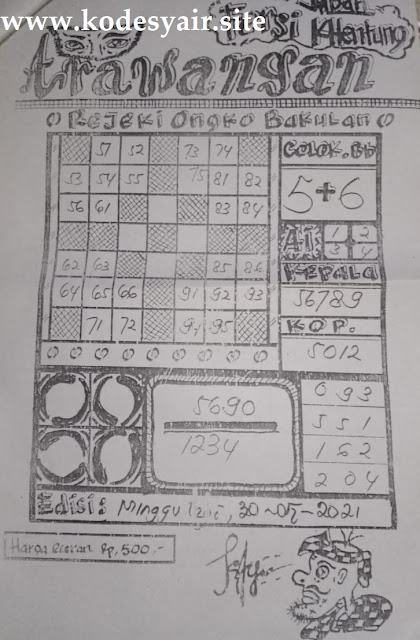 www.kodesyair.site
Kursi Khantung
trawangan
REJEKI ONGKO BAKULAN
57 52 73 74
COLOK.BB
53 54 55 75 81 82
5+6
56 61 83 84
AI 1 2 3 4
62 63 85 86
KEPALA
64 65 66 91 92 93
56789
71 72 94 95
KOP.
5012
5690
1234
093
551
162
204
Edisi: Minggu 30-05-2021
Harga Eceran Rp, 500,-